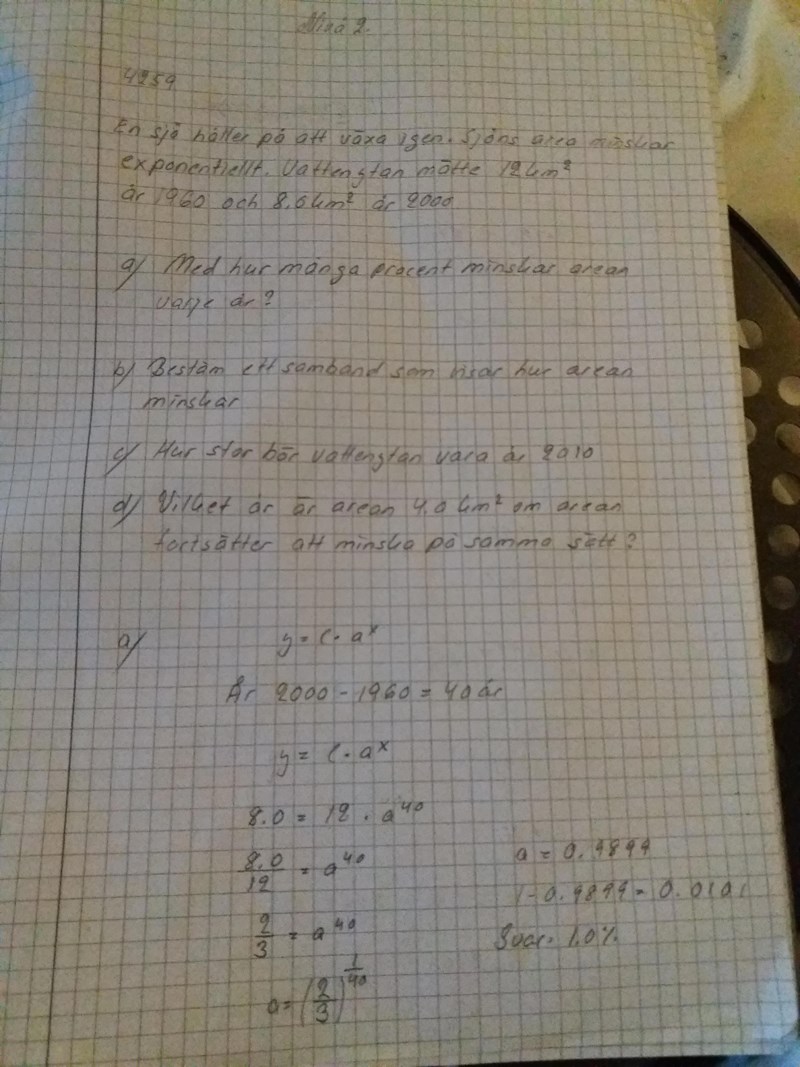 Nivå 2.
4259
En sjö håller på att växa igen. Sjöns area minskar
exponentiellt. Vattenytan mätte 12 km²
år 1960 och 8.0 km² år 2000
a) Med hur många procent minskar arean
varje år?
b) Bestäm ett samband som visar hur arean
minskar
c) Hur stor bör vattenytan vara år 2010
d) Vilket år är arean 4.0 km² om arean
fortsätter att minska på samma sätt?
a) y = C · aˣ
År 2000 - 1960 = 40 år
y = C · aˣ
8.0 = 12 · a⁴⁰
8.0/12 = a⁴⁰
2/3 = a⁴⁰
a = (2/3)^(1/40)
a = 0.9899
1 - 0.9899 = 0.0101
Svar. 1.0%